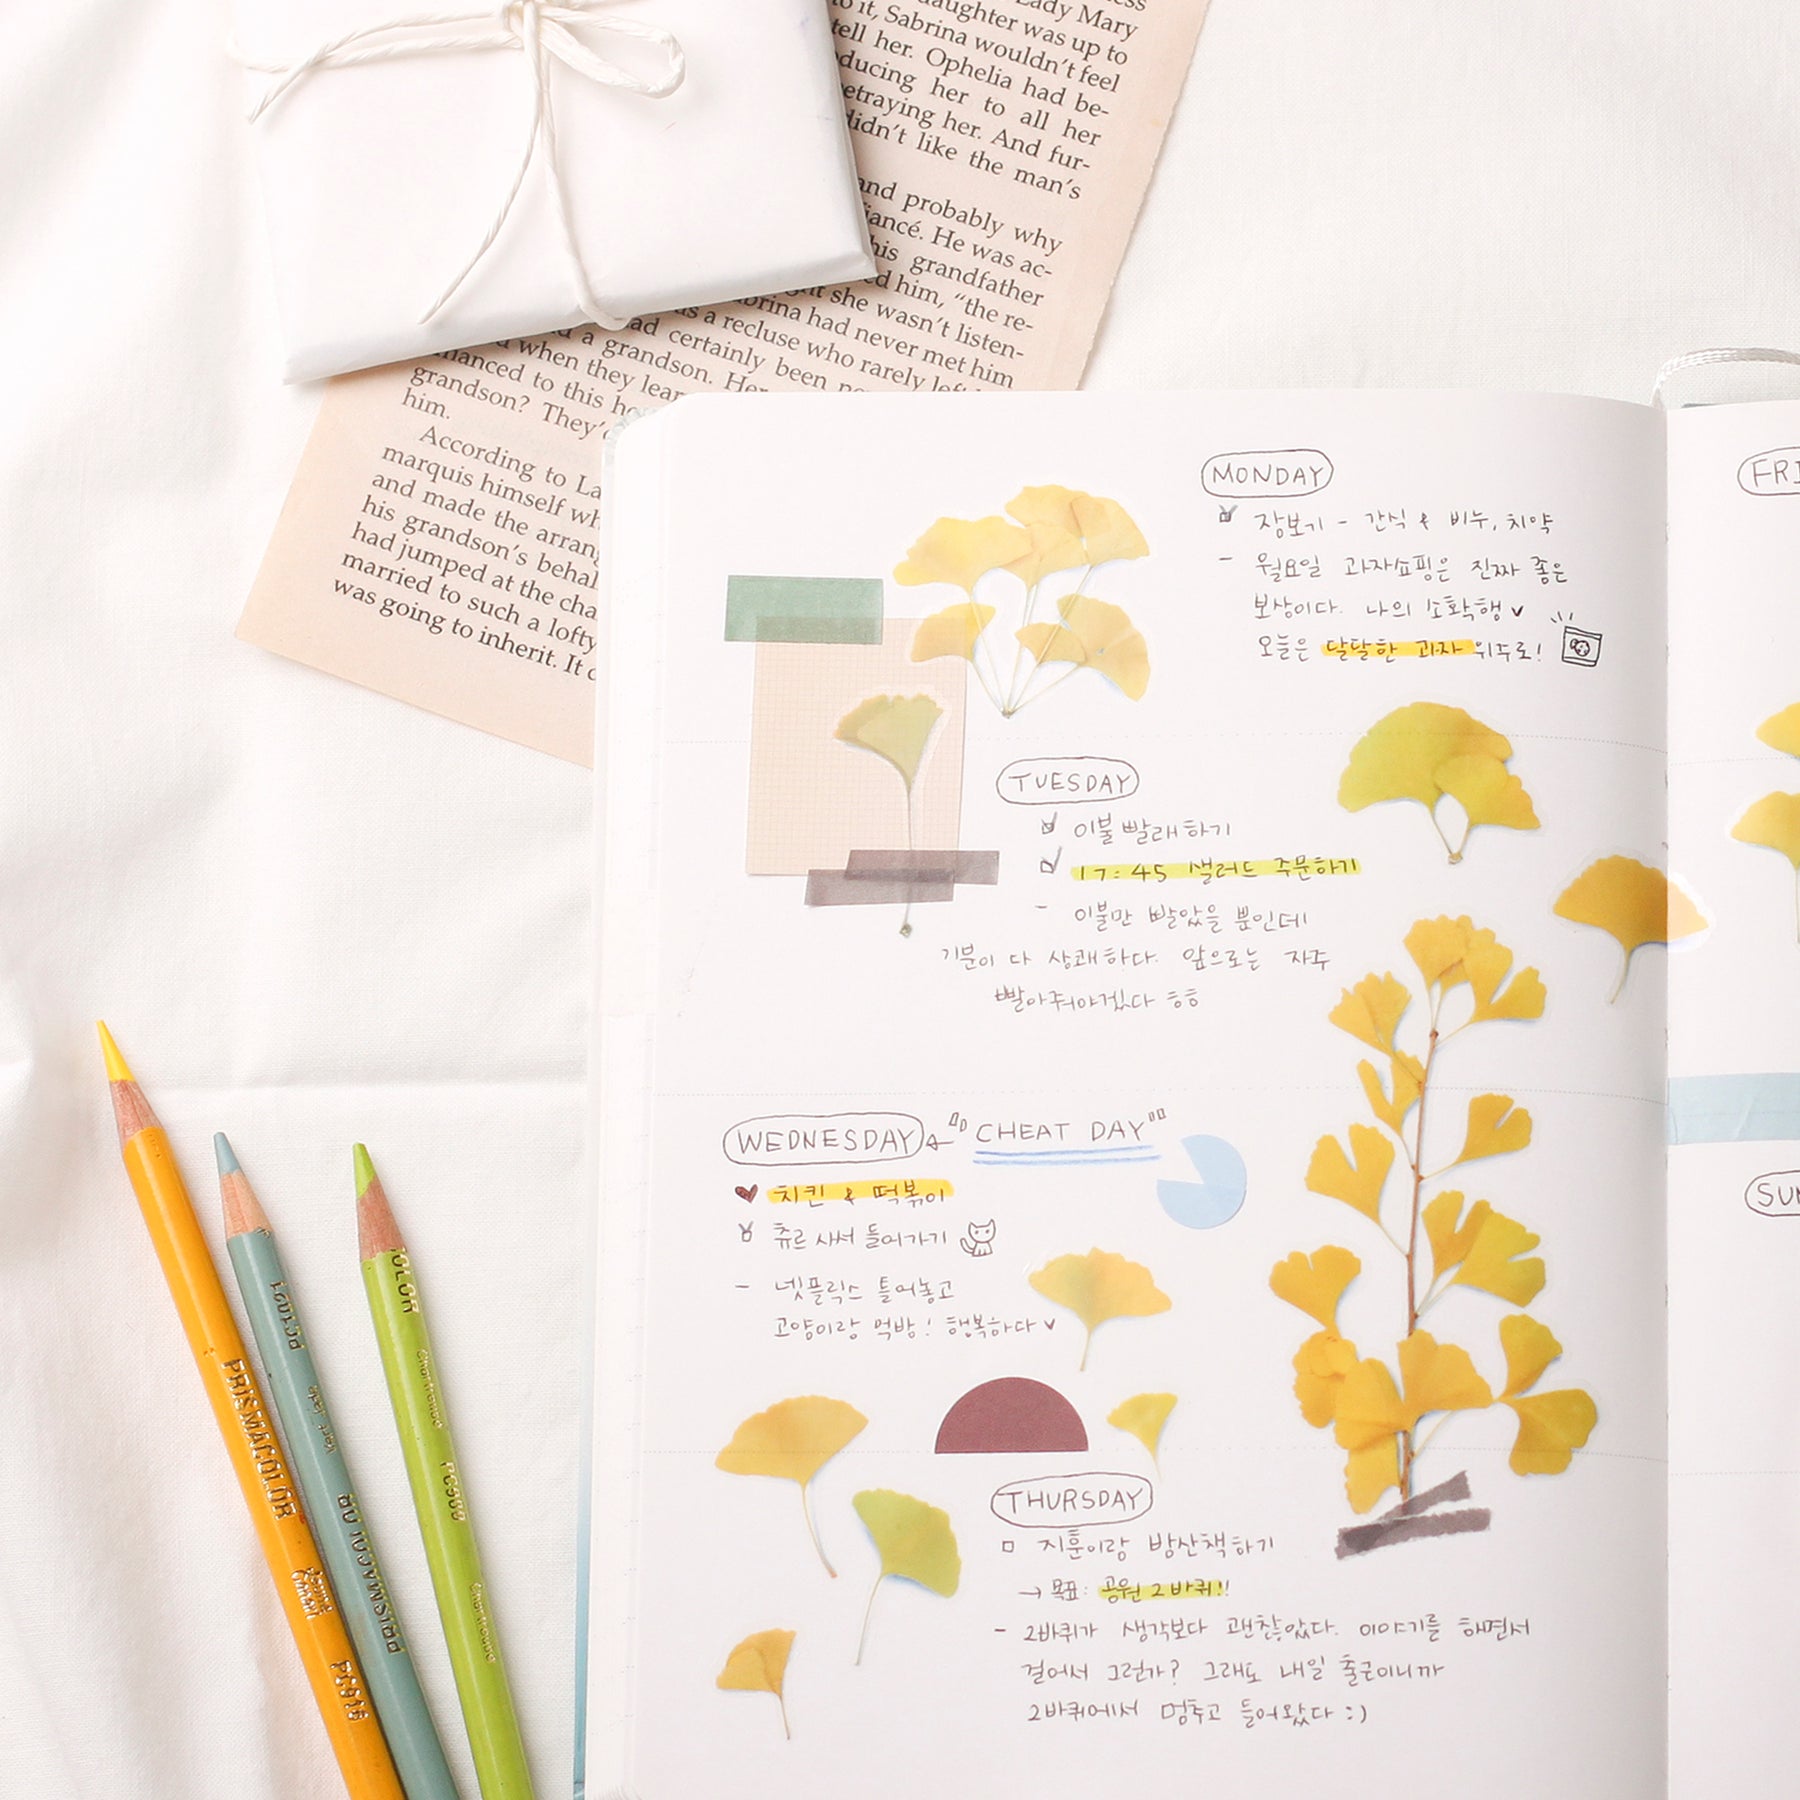 Lady Mary
daughter was up to
to it, Sabrina wouldn't feel
tell her. Ophelia had be-
ducing her to all her
etraying her. And fur-
didn't like the man's
and probably why
fiancé. He was ac-
his grandfather
ed him, "the re-
she wasn't listen-
brina had never met him
as a recluse who rarely left
had certainly been
a grandson. Her
when they lear
grandson? They'd
him.
According to La
marquis himself wh
and made the arran
his grandson's behal
had jumped at the cha
married to such a lofty
was going to inherit. It
MONDAY
장보기 - 간식 & 비누, 치약
- 월요일 과자쇼핑은 진짜 좋은
보상이다. 나의 소확행
오늘은 달달한 과자 위주로!
TUESDAY
이불 빨래하기
17:45 샐러드 주문하기
- 이불만 빨았을 뿐인데
기분이 다 상쾌하다. 앞으로는 자주
빨아줘야겠다 ㅎㅎ
WEDNESDAY ← "CHEAT DAY"
치킨 & 떡볶이
츄르 사서 들어가기
- 넷플릭스 틀어놓고
고양이랑 먹방! 행복하다
THURSDAY
지훈이랑 밤산책하기
→ 목표: 공원 2바퀴!!
- 2바퀴가 생각보다 괜찮았다. 이야기를 하면서
걸어서 그런가? 그래도 내일 출근이니까
2바퀴에서 멈추고 들어왔다 :)
FRI
SUN
PRISMACOLOR
PC916
PRISMACOLOR
PC989